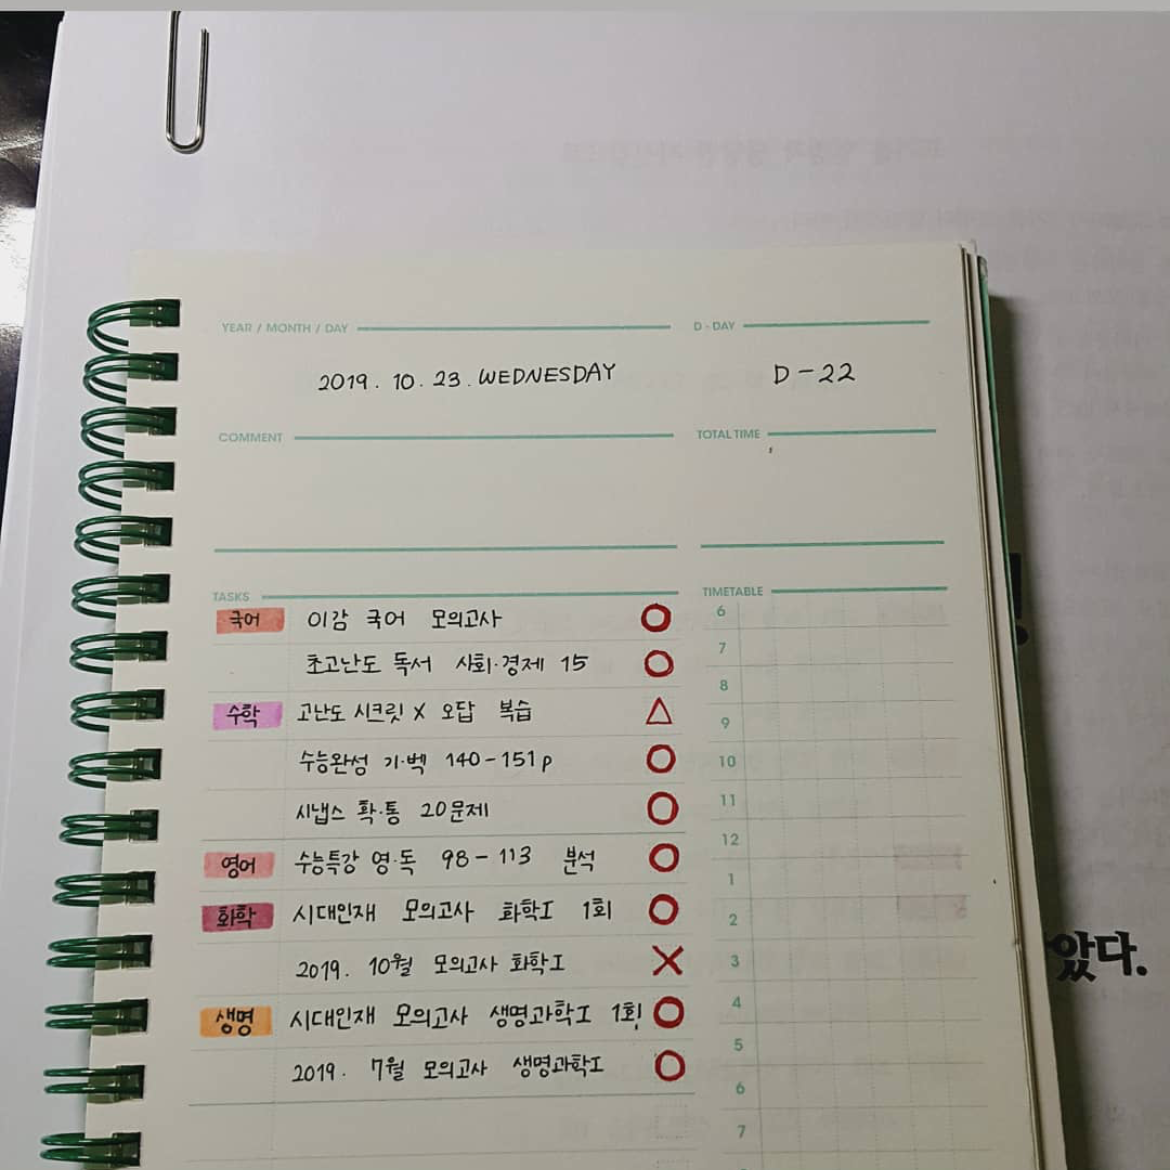 YEAR / MONTH / DAY D - DAY
2019. 10. 23. WEDNESDAY D-22
COMMENT TOTAL TIME
TASKS TIMETABLE
국어 이감 국어 모의고사 O 6
초고난도 독서 사회·경제 15 O 7
8
수학 고난도 시크릿 X 오답 복습 △ 9
수능완성 기·벡 140-151p O 10
시냅스 확·통 20문제 O 11
12
영어 수능특강 영·독 98-113 분석 O 1
화학 시대인재 모의고사 화학I 1회 O 2
2019. 10월 모의고사 화학I X 3
생명 시대인재 모의고사 생명과학I 1회 O 4
5
2019. 7월 모의고사 생명과학I O 6
7
았다.